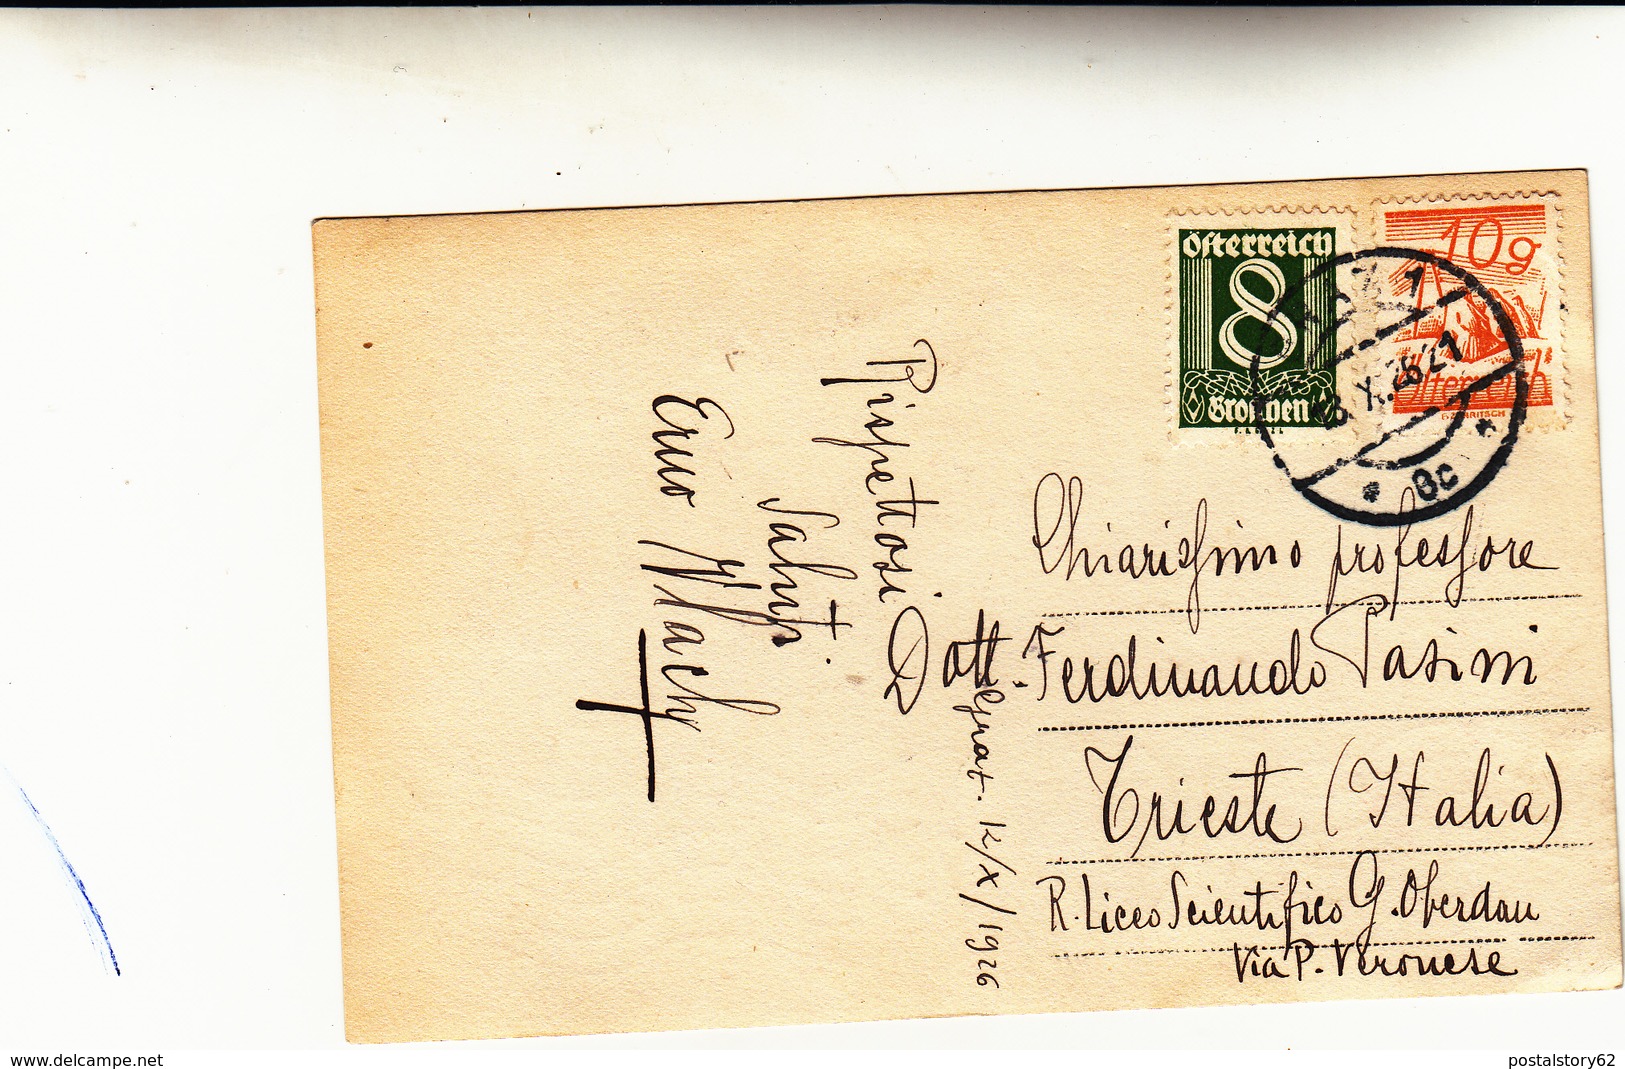 Österreich
8
Groschen
10g
Österreich
X.26 21
8c
Chiarissimo professore
Dott. Ferdinando Pasini
Trieste (Italia)
R. Liceo Scientifico G. Oberdan
Via P. Veronese
Rispettosi
Saluti.
Erno Vlach
12/X/1926
www.delcampe.net
postalstory62